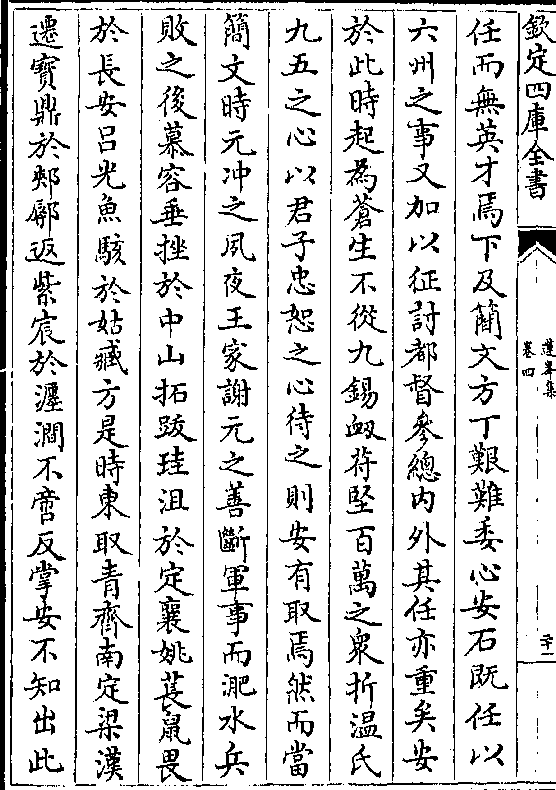 欽定四庫全書
蓮峯集
卷四
二十一
任而無英才焉下及簡文方丁艱難委心安石既任以
六州之事又加以征討都督參總內外其任亦重矣安
於此時起為蒼生不從九錫衂苻堅百萬之衆折温氏
九五之心以君子忠恕之心待之則安有取焉然而當
簡文時元冲之夙夜王家謝元之善斷軍事而淝水兵
敗之後慕容垂挫於中山拓跋珪沮於定襄姚萇鼠畏
於長安吕光魚駭於姑臧方是時東取青齊南定梁漢
遷寳鼎於郟鄏返紫宸於瀍澗不啻反掌安不知出此